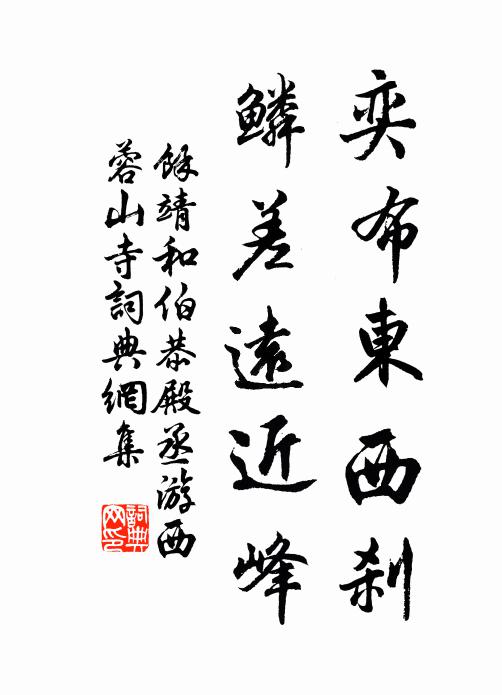 奕布東西刹
鱗差遠近峰
餘靖和伯恭殿丞游西
蓉山寺詞典網集
詞典網印